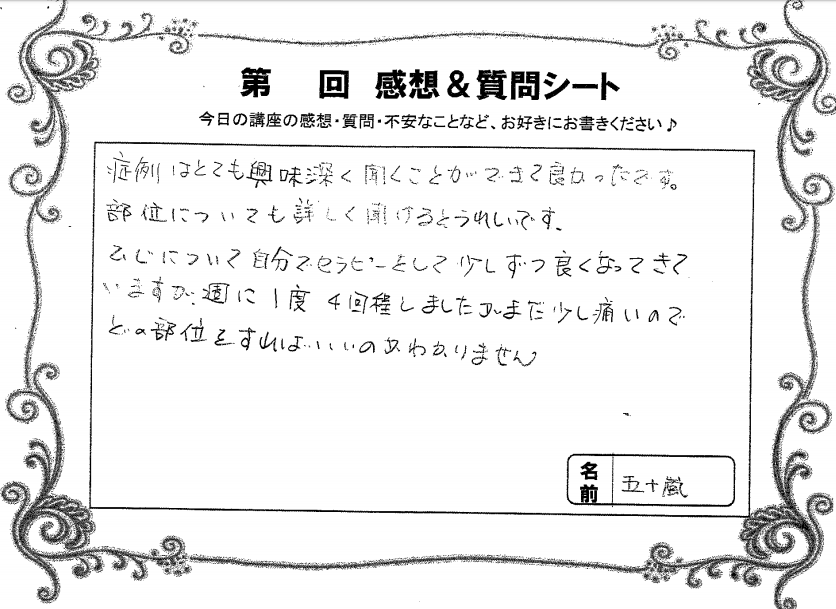 第　回 感想＆質問シート
今日の講座の感想・質問・不安なことなど、お好きにお書きください♪
症例はとても興味深く聞くことができて良かったです。
部位についても詳しく聞けるとうれしいです。
ひじについて自分でセラピーをして少しずつ良くなってきて
いますが、週に1度 4回程しましたがまだ少し痛いので
どの部位をすればいいのかわかりません
名前 五十嵐